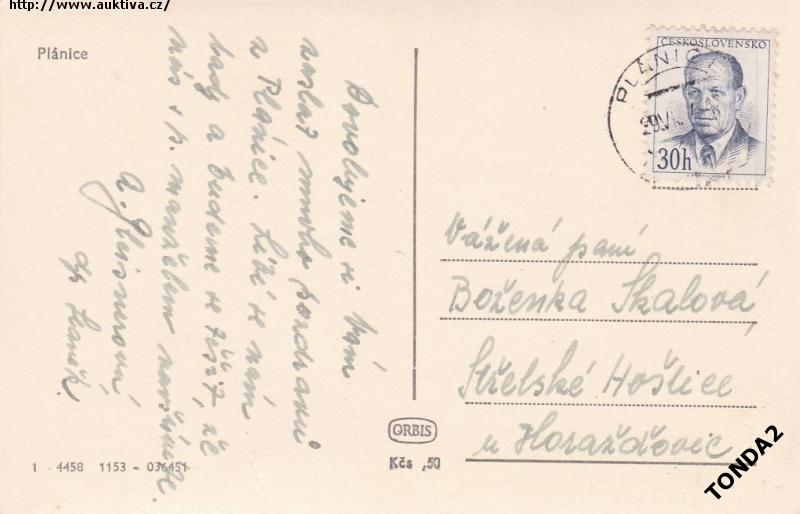 http://www.auktiva.cz/
Plánice
Dovolujeme si Vám
zaslat mnoho pozdravů
z Plánice. Líbí se nám
tady a budeme se těšit, že
nás s p. manželem navštívíte.
ČESKOSLOVENSKO
30h
PLÁNICE
Vážená paní
Boženka Skalová
Střelské Hoštice
u Horažďovic
ORBIS
Kčs ,50
1 - 4458 1153 - 036451
TONDA2